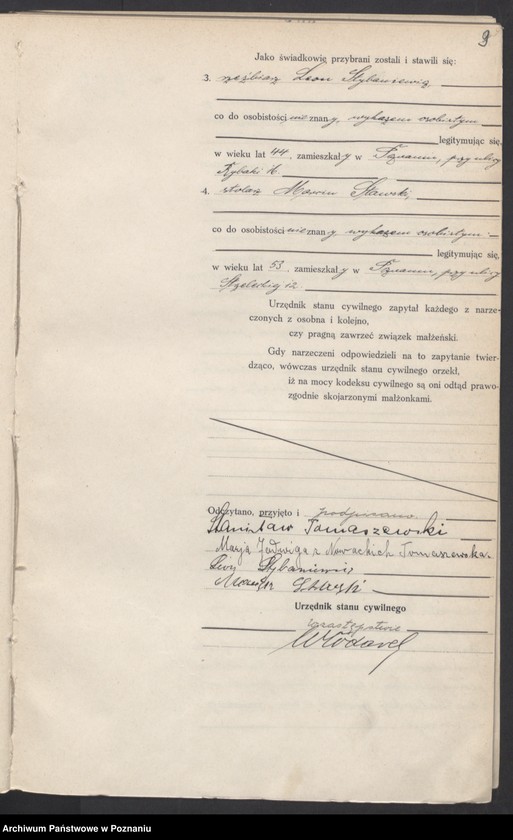 9
Jako świadkowie przybrani zostali i stawili się:
3. rzeźbiarz Leon Stybaniewicz
co do osobistości nieznany, wykazem osobistym
legitymując się,
w wieku lat 44, zamieszkały w Poznaniu, przy ulicy
Rybaki
4. stolarz Marcin Sławski,
co do osobistości nieznany wykazem osobistym
legitymując się,
w wieku lat 53, zamieszkały w Poznaniu, przy ulicy
12
Urzędnik stanu cywilnego zapytał każdego z narze-
czonych z osobna i kolejno,
czy pragną zawrzeć związek małżeński.
Gdy narzeczeni odpowiedzieli na to zapytanie twier-
dząco, wówczas urzędnik stanu cywilnego orzekł,
iż na mocy kodeksu cywilnego są oni odtąd prawo-
zgodnie skojarzonymi małżonkami.
Odczytano, przyjęto i podpisano.
Stanisław Tomaszewski
Marja Jadwiga z Nowackich Tomaszewska.
Urzędnik stanu cywilnego
w zastępstwie
Archiwum Państwowe w Poznaniu